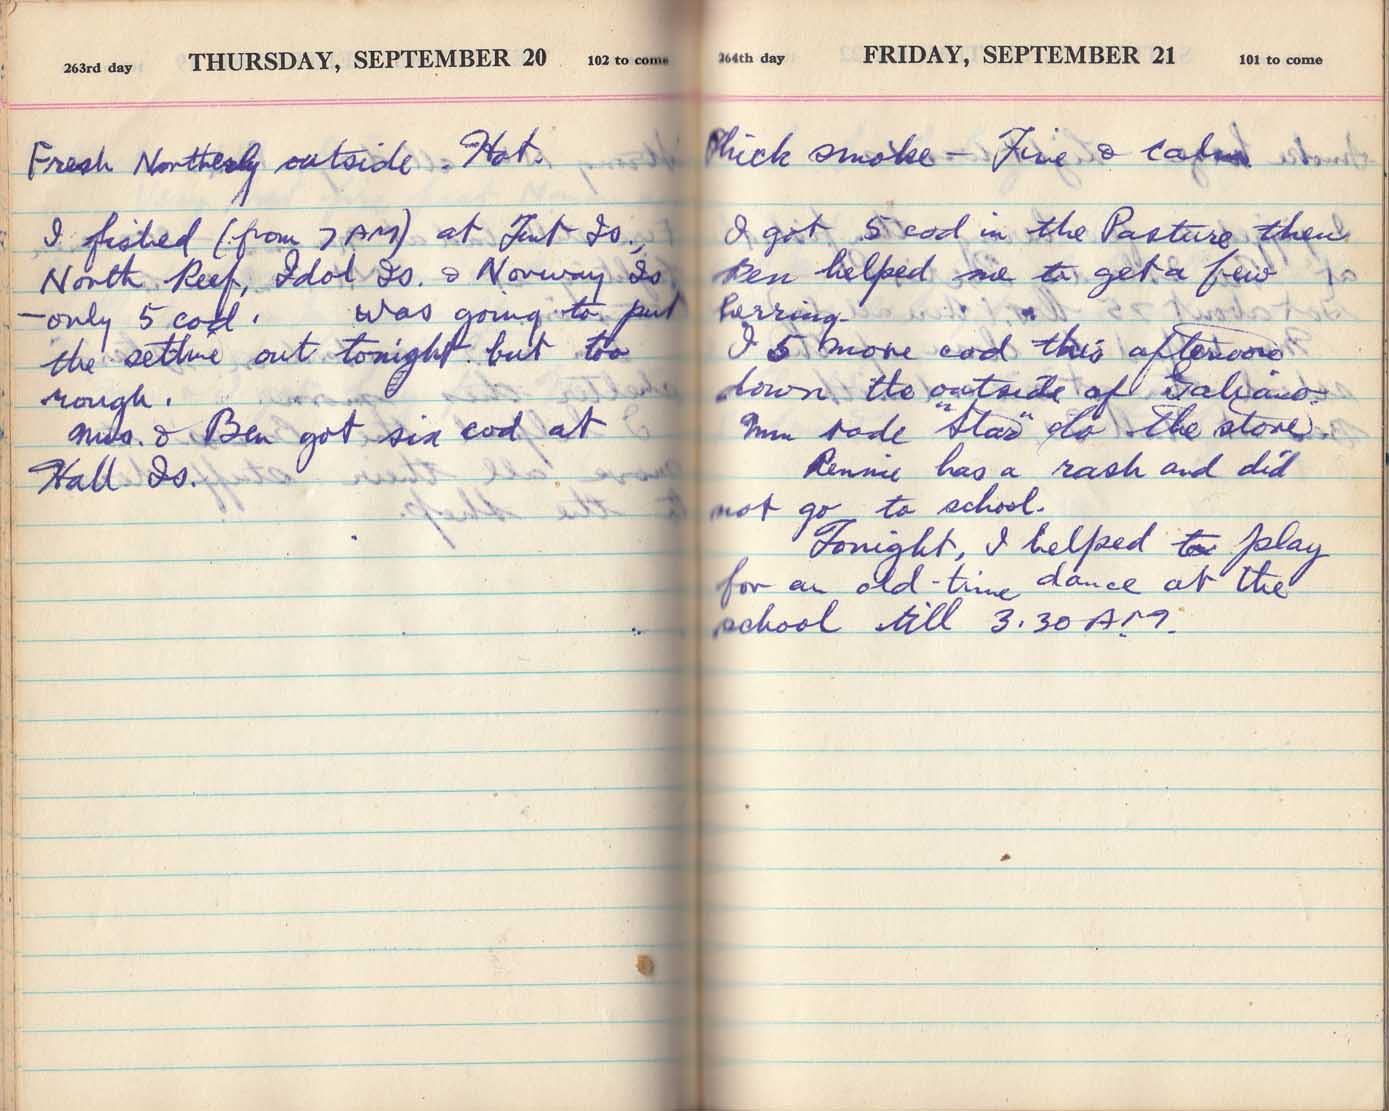 263rd day THURSDAY, SEPTEMBER 20 102 to come
Fresh Northerly outside. Hot.
I fished (from 7 AM) at Tent Is.,
North Reef, Idol Is. & Norway Is
- only 5 cod. was going to put
the setline out tonight but too
rough.
Mrs. & Ben got six cod at
Hall Is.
264th day FRIDAY, SEPTEMBER 21 101 to come
Thick smoke - Fine & calm
I got 5 cod in the Pasture, then
Ben helped me to get a few
herring.
I 5 more cod this afternoon
down the outside of Galiano.
rode "Star" to the store.
Rennie has a rash and did
not go to school.
Tonight, I helped to play
for an old-time dance at the
school till 3.30 AM.